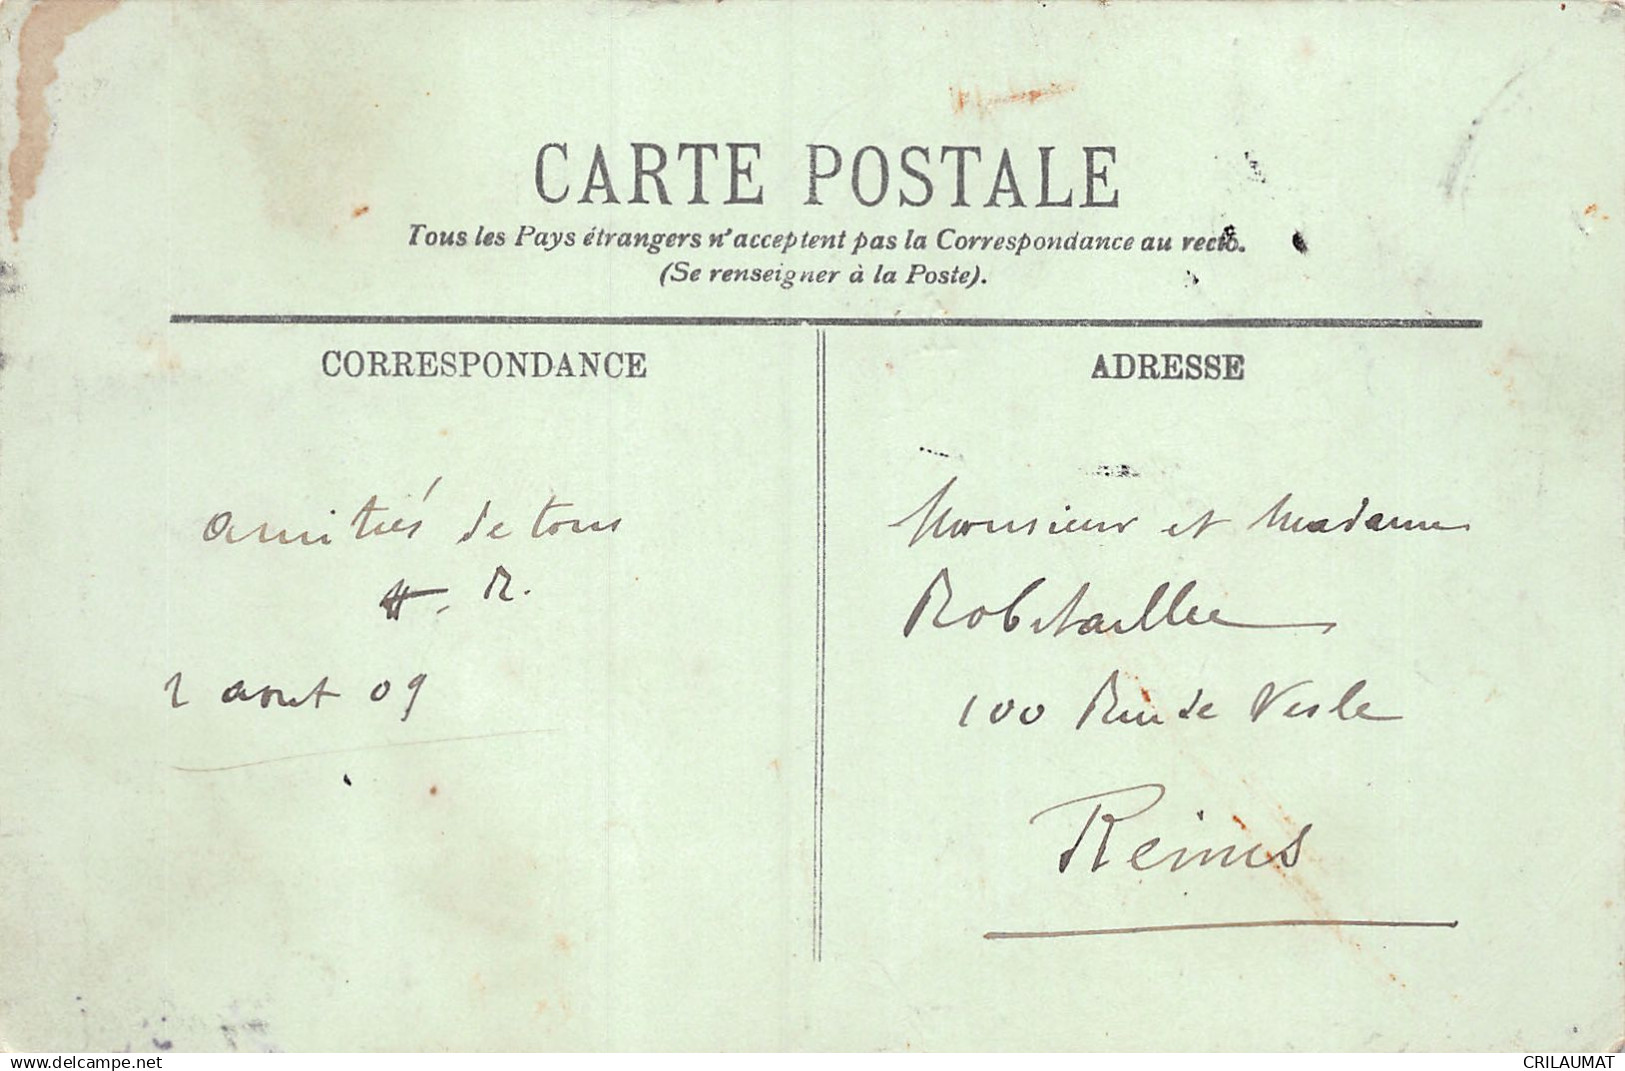 CARTE POSTALE
Tous les Pays étrangers n'acceptent pas la Correspondance au recto.
(Se renseigner à la Poste).
CORRESPONDANCE
amitiés de tous
H. R.
2 aout 09
ADRESSE
Monsieur et Madame
Robitaillie
100 Rue de Vesle
Reims
www.delcampe.net
CRILAUMAT